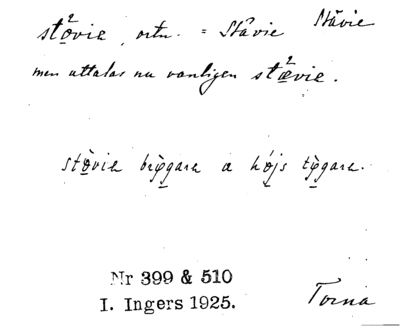 stǫ²vie, ortn. = Stâvie Stävie
men uttalas nu vanligen stæ²vie.
stǫ̀vie brỳgare a hǫ́js tỳgare.
Nr 399 & 510
I. Ingers 1925. Torna